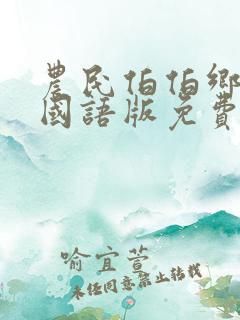 農民伯伯鄉
國語版免費
喻宜萱
未经同意禁止转载